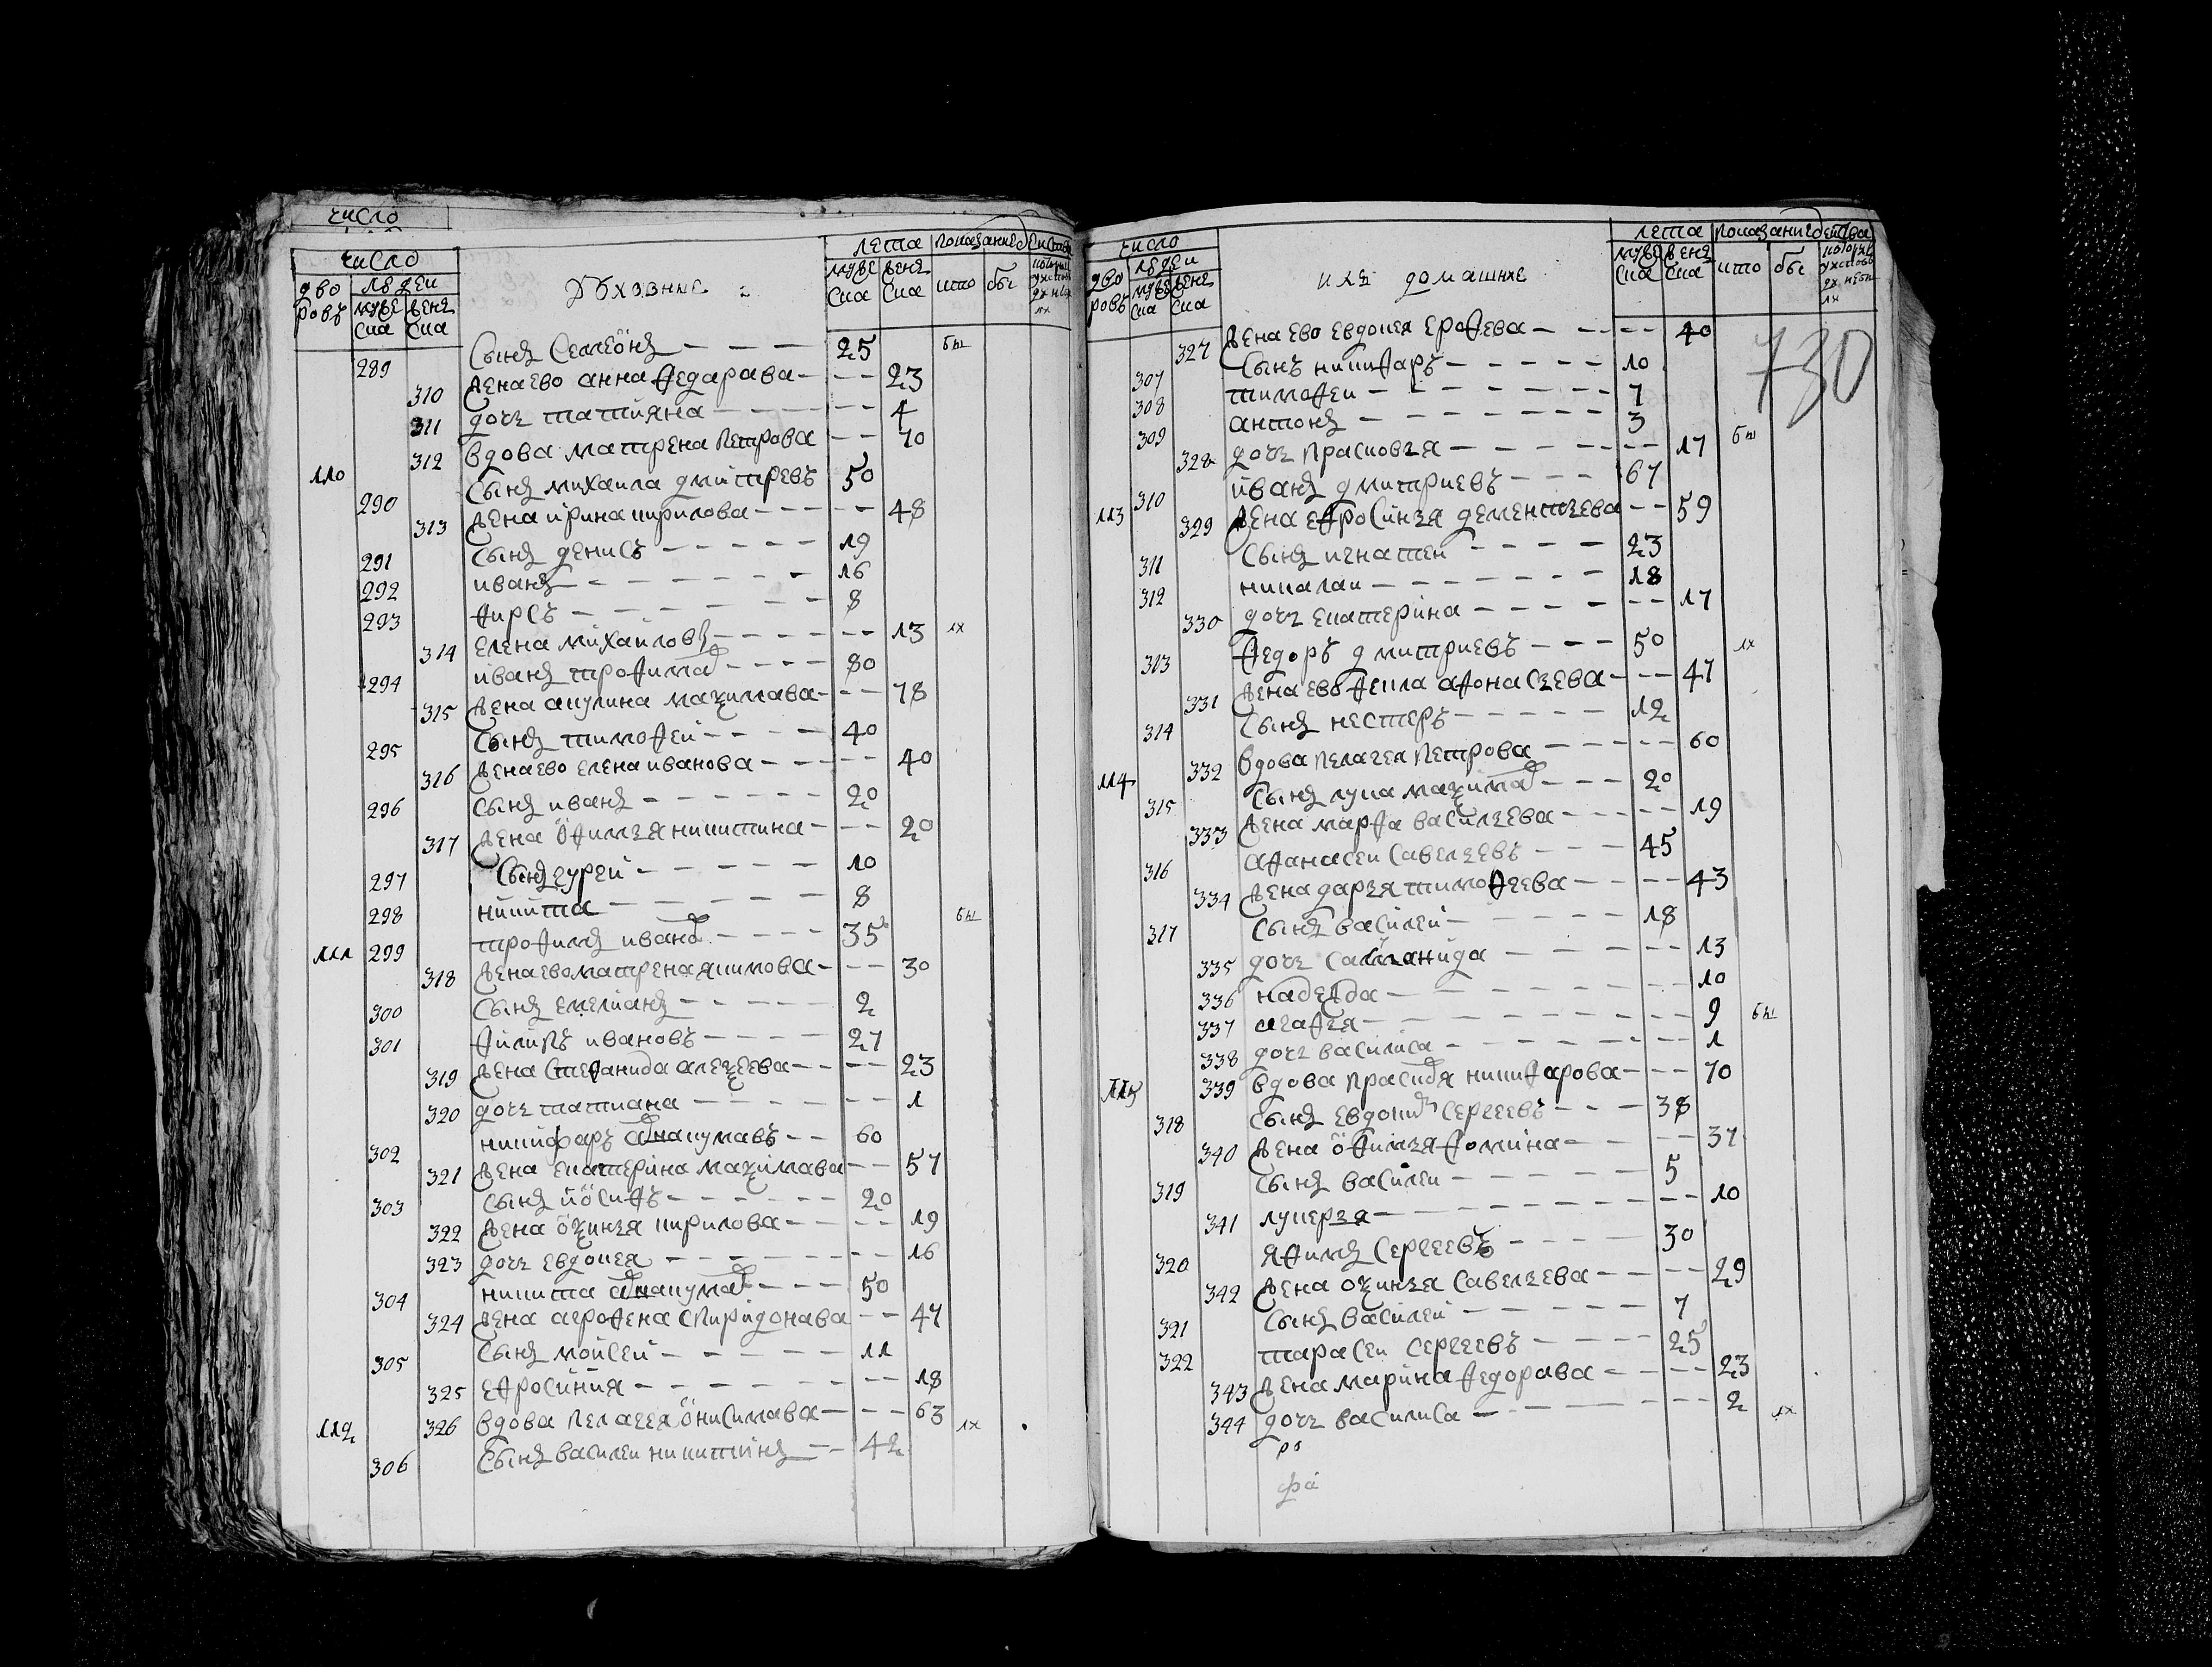 число
число
дво ровъ людеи мужеска женска
дѹховныє
лета показаниє
мужеска женска кто бы
289 Сынъ Семеонъ 25 бы
310 жена ево анна федарава 23
311 дочь татияна 4
312 вдова матрена петрова 70
110 290 Сынъ михаила дмитревъ 50
313 жена ирина кирилова 48
291 Сынъ денисъ 19
292 иванъ 16
293 фирсъ 8
314 елена михаилов 13 их
294 иванъ трофимо 80
315 жена акулина маѯимава 78
295 Сынъ тимофеи 40
316 жена ево елена иванова 40
296 Сынъ иванъ 20
317 жена офимья никитина 20
297 Сынъ гуреи 10
298 никита 8 бы
111 299 трофимъ ивано 35
318 жена ево матрена якимова 30
300 Сынъ емелианъ 2
301 филипъ ивановъ 27
319 жена Стефанида алеѯеева 23
320 дочь татиана 1
302 никифаръ аѳанаку мавъ 60
321 жена екатерина маѯимава 57
303 Сынъ иосифъ 20
322 жена оѯинья кирилова 19
323 дочь евдокея 16
304 никита 50
324 жена агрофена спиридонава 47
305 Сынъ моисеи 11
325 ефросиния 18
112 326 вдова пелагея онисимава 63 их
306 Сынъ василеи никитинъ 42
число
дво ровъ людеи мужеска женска
ихъ домашние
лета показание
мужеска женска кто бы
730
327 жена ево евдокея ерофева 40
307 Сынъ никифаръ 10
308 тимофеи 7
309 антонъ 3
328 дочь прасковья 17 бы
113 310 иванъ дмитриевъ 67
329 жена ефросинья дементьева 59
311 Сынъ игнатеи 23
312 никалаи 18
330 дочь екатерина 17
313 федоръ дмитриевъ 50 их
331 жена ево фекла афонасьева 47
314 Сынъ нестеръ 12
114 332 вдова пелагея петрова 60
315 Сынъ лука маѯимо 20
333 жена марфа васильева 19
316 афанасеи савельевъ 45
334 жена дарья тимофеева 43
317 Сынъ василеи 18
335 дочь 13
336 надежда 10
337 агафья 9 бы
338 дочь василиса 1
115 339 вдова никифарова 70
318 Сынъ евдоким Сергеевъ 38
340 жена офимья фомина 37
319 Сынъ василеи 5
341 лукерья 10
320 яфимъ Сергеевъ 30
342 жена оѯинья савельева 29
321 Сынъ василеи 7
322 тарасеи сергеевъ 25
343 жена марина федорава 23
344 дочь василиса 2 их